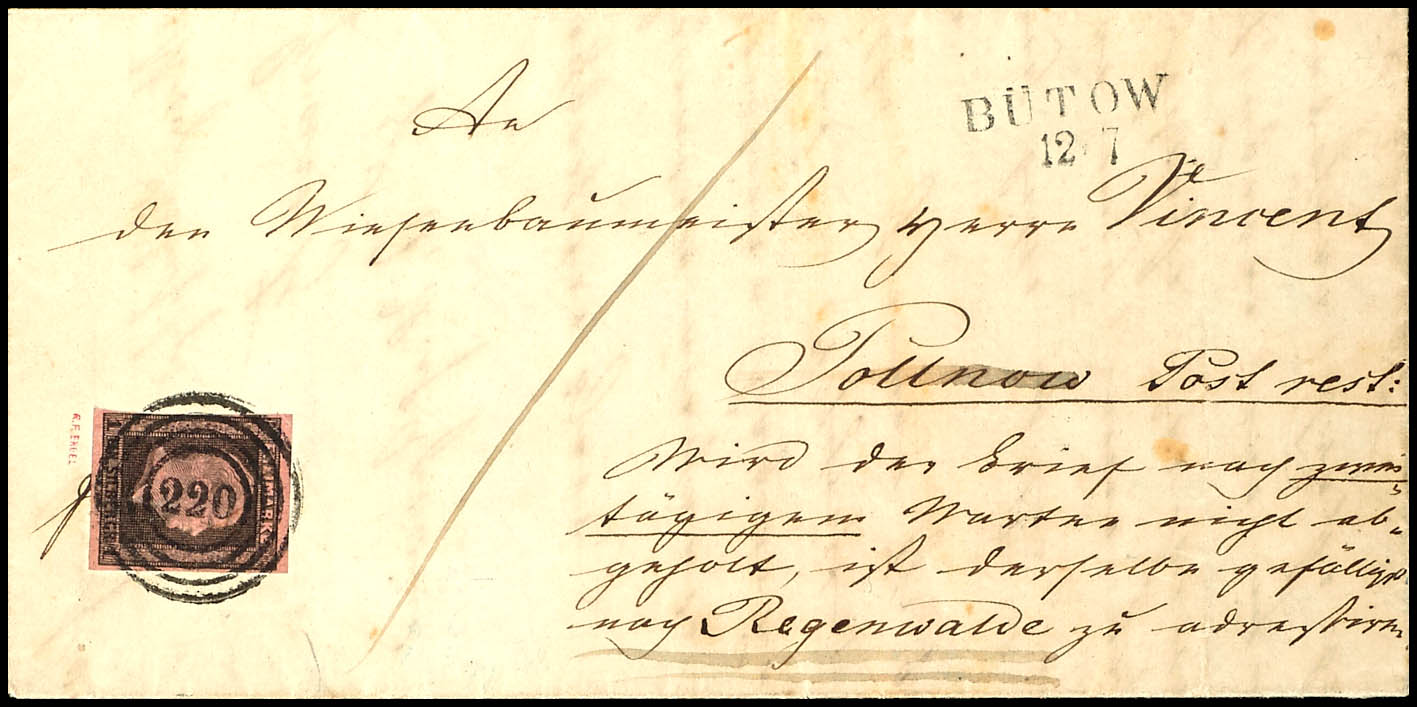 BÜTOW
12 7
An
den Wiesenbaumeister Herrn Vincent
Pollnow Post rest:
Wird der Brief nach zwei-
tägigem Warten nicht ab-
geholt, ist derselbe gefälligst
nach Regenwalde zu adressiren
220
FREIMARKE